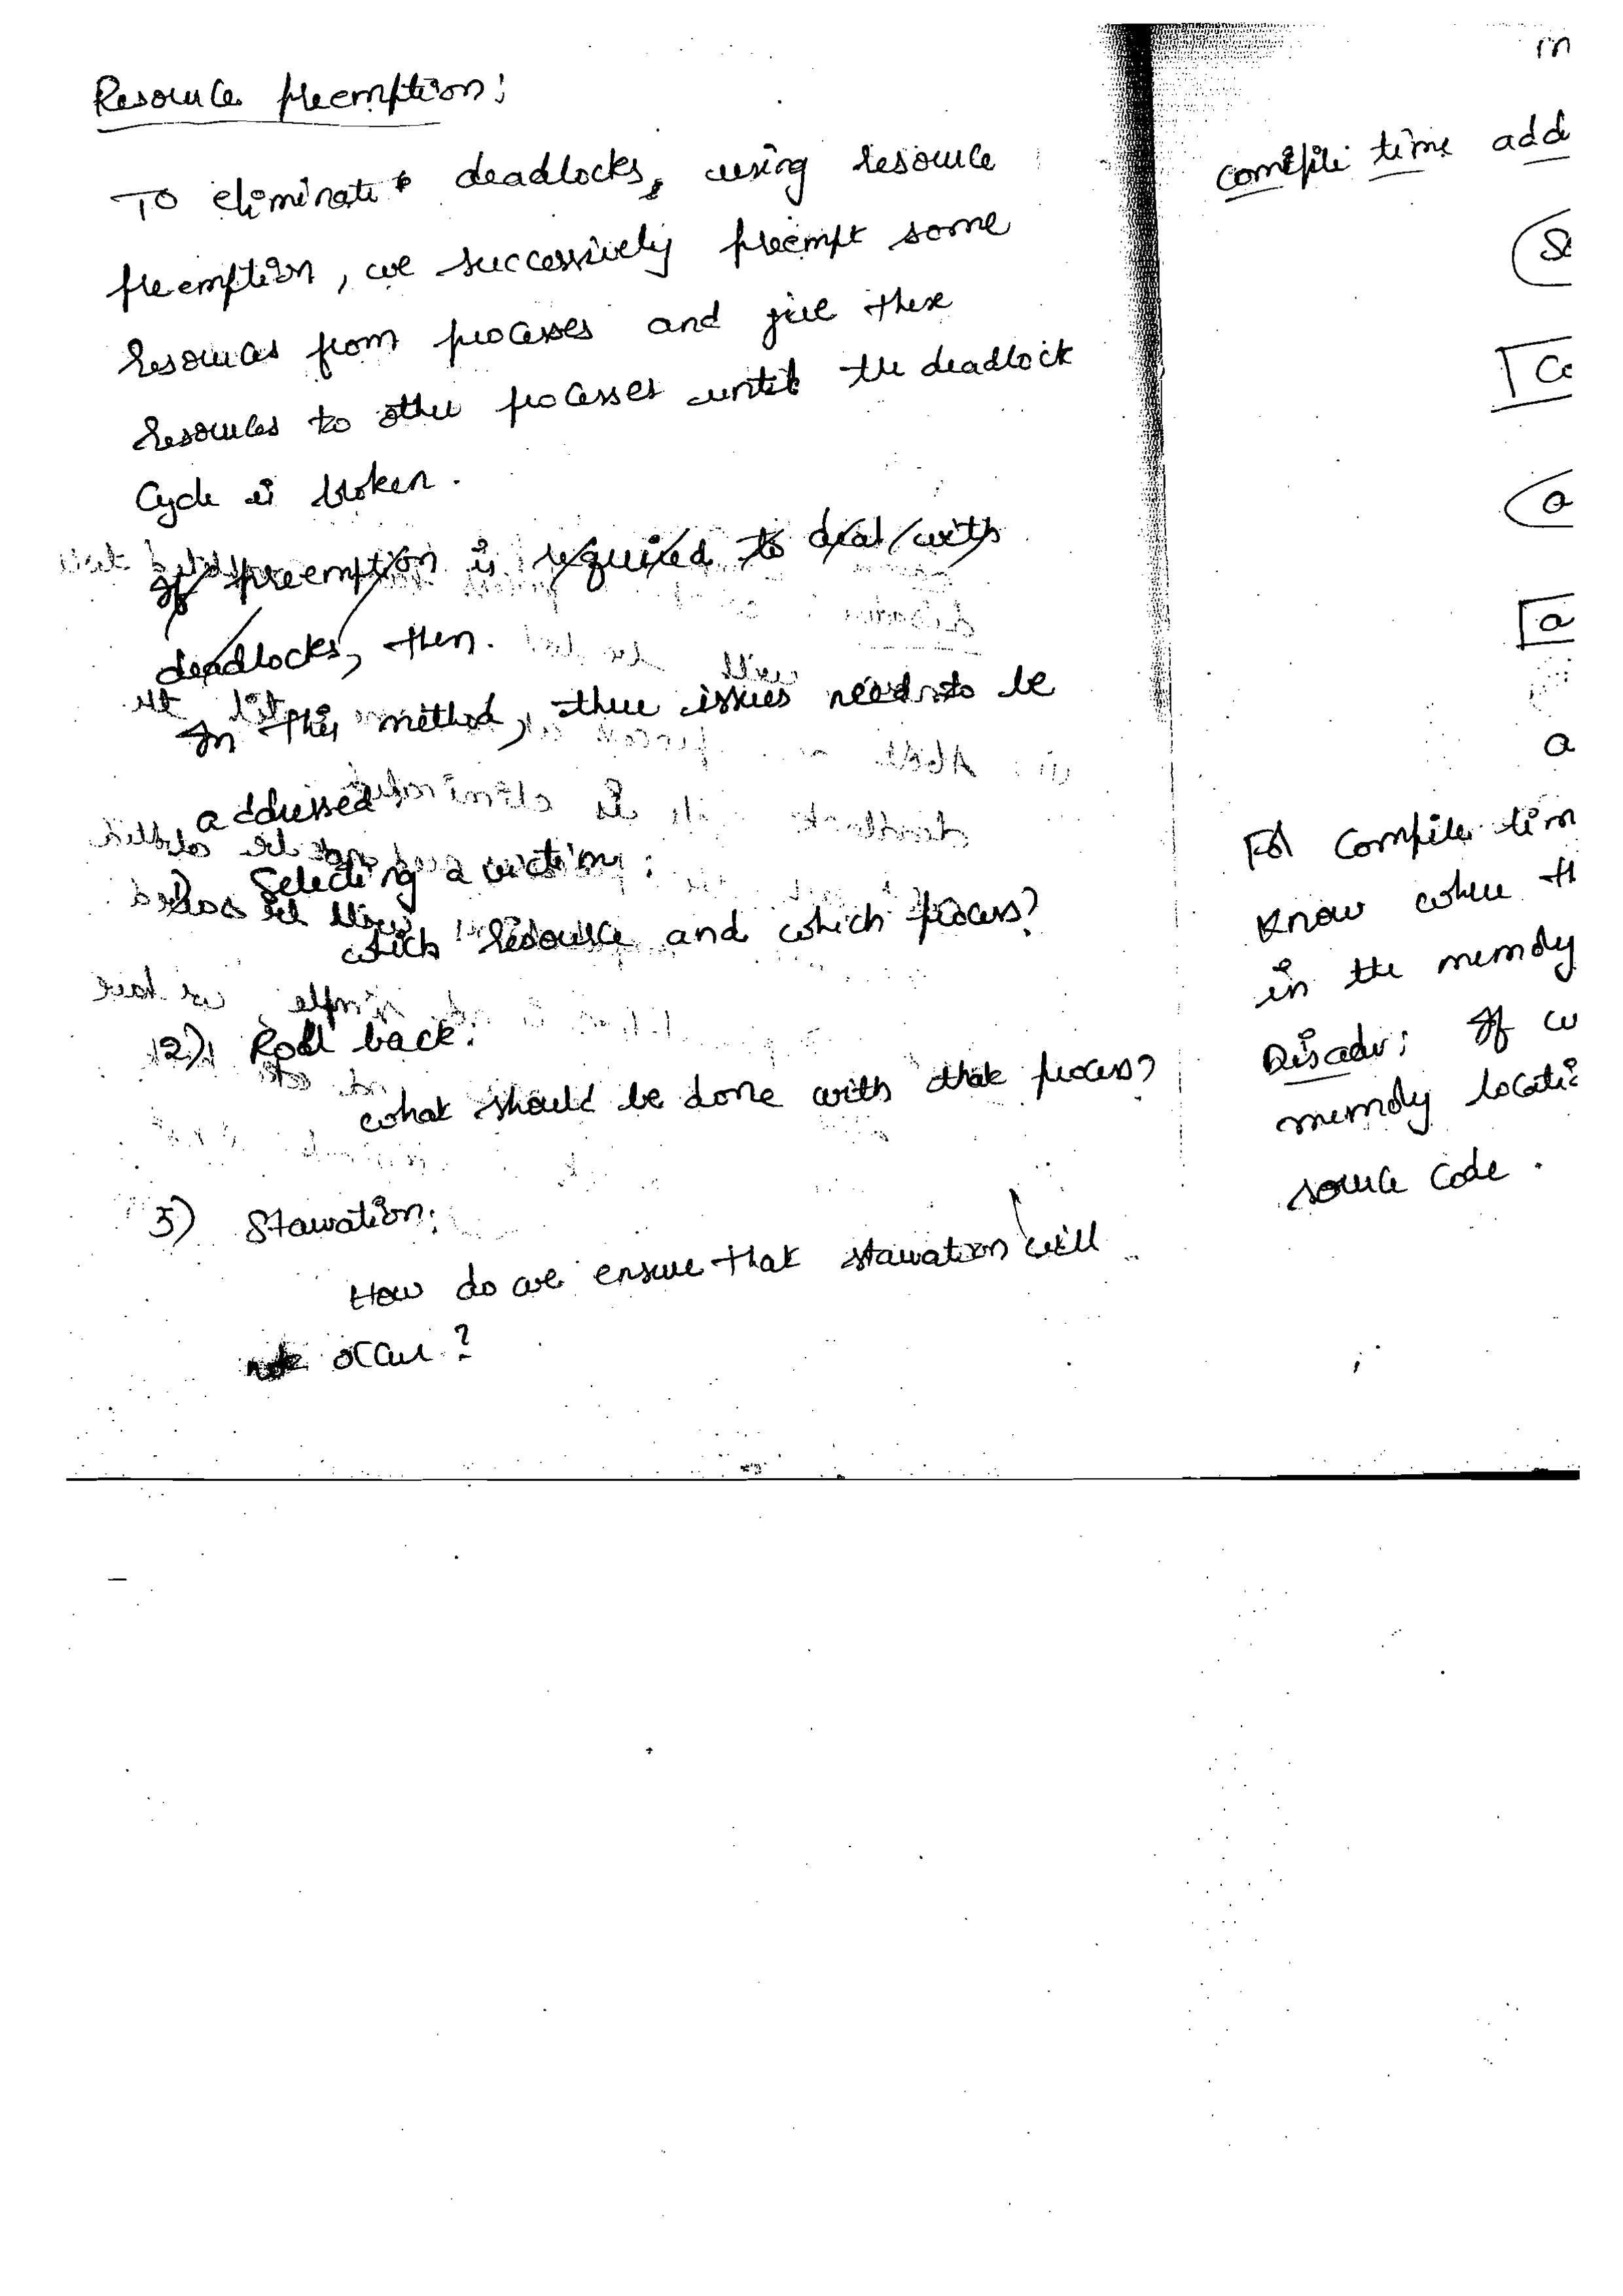 Resource preemption:
To eliminate deadlocks, using resource
preemption, we successively preempt some
resources from processes and give these
resources to other processes until the deadlock
cycle is broken.
If preemption is required to deal with
deadlocks, then.
In this method, three issues need to be
addressed
1) Selecting a victim:
which resource and which process?
2) Roll back:
what should be done with that process?
3) Starvation:
How do we ensure that starvation will
not occur?
m
compile time add
So
Co
a
a
a
For compile tim
know where th
in the memory
Disadv: If w
memory locatio
source code.